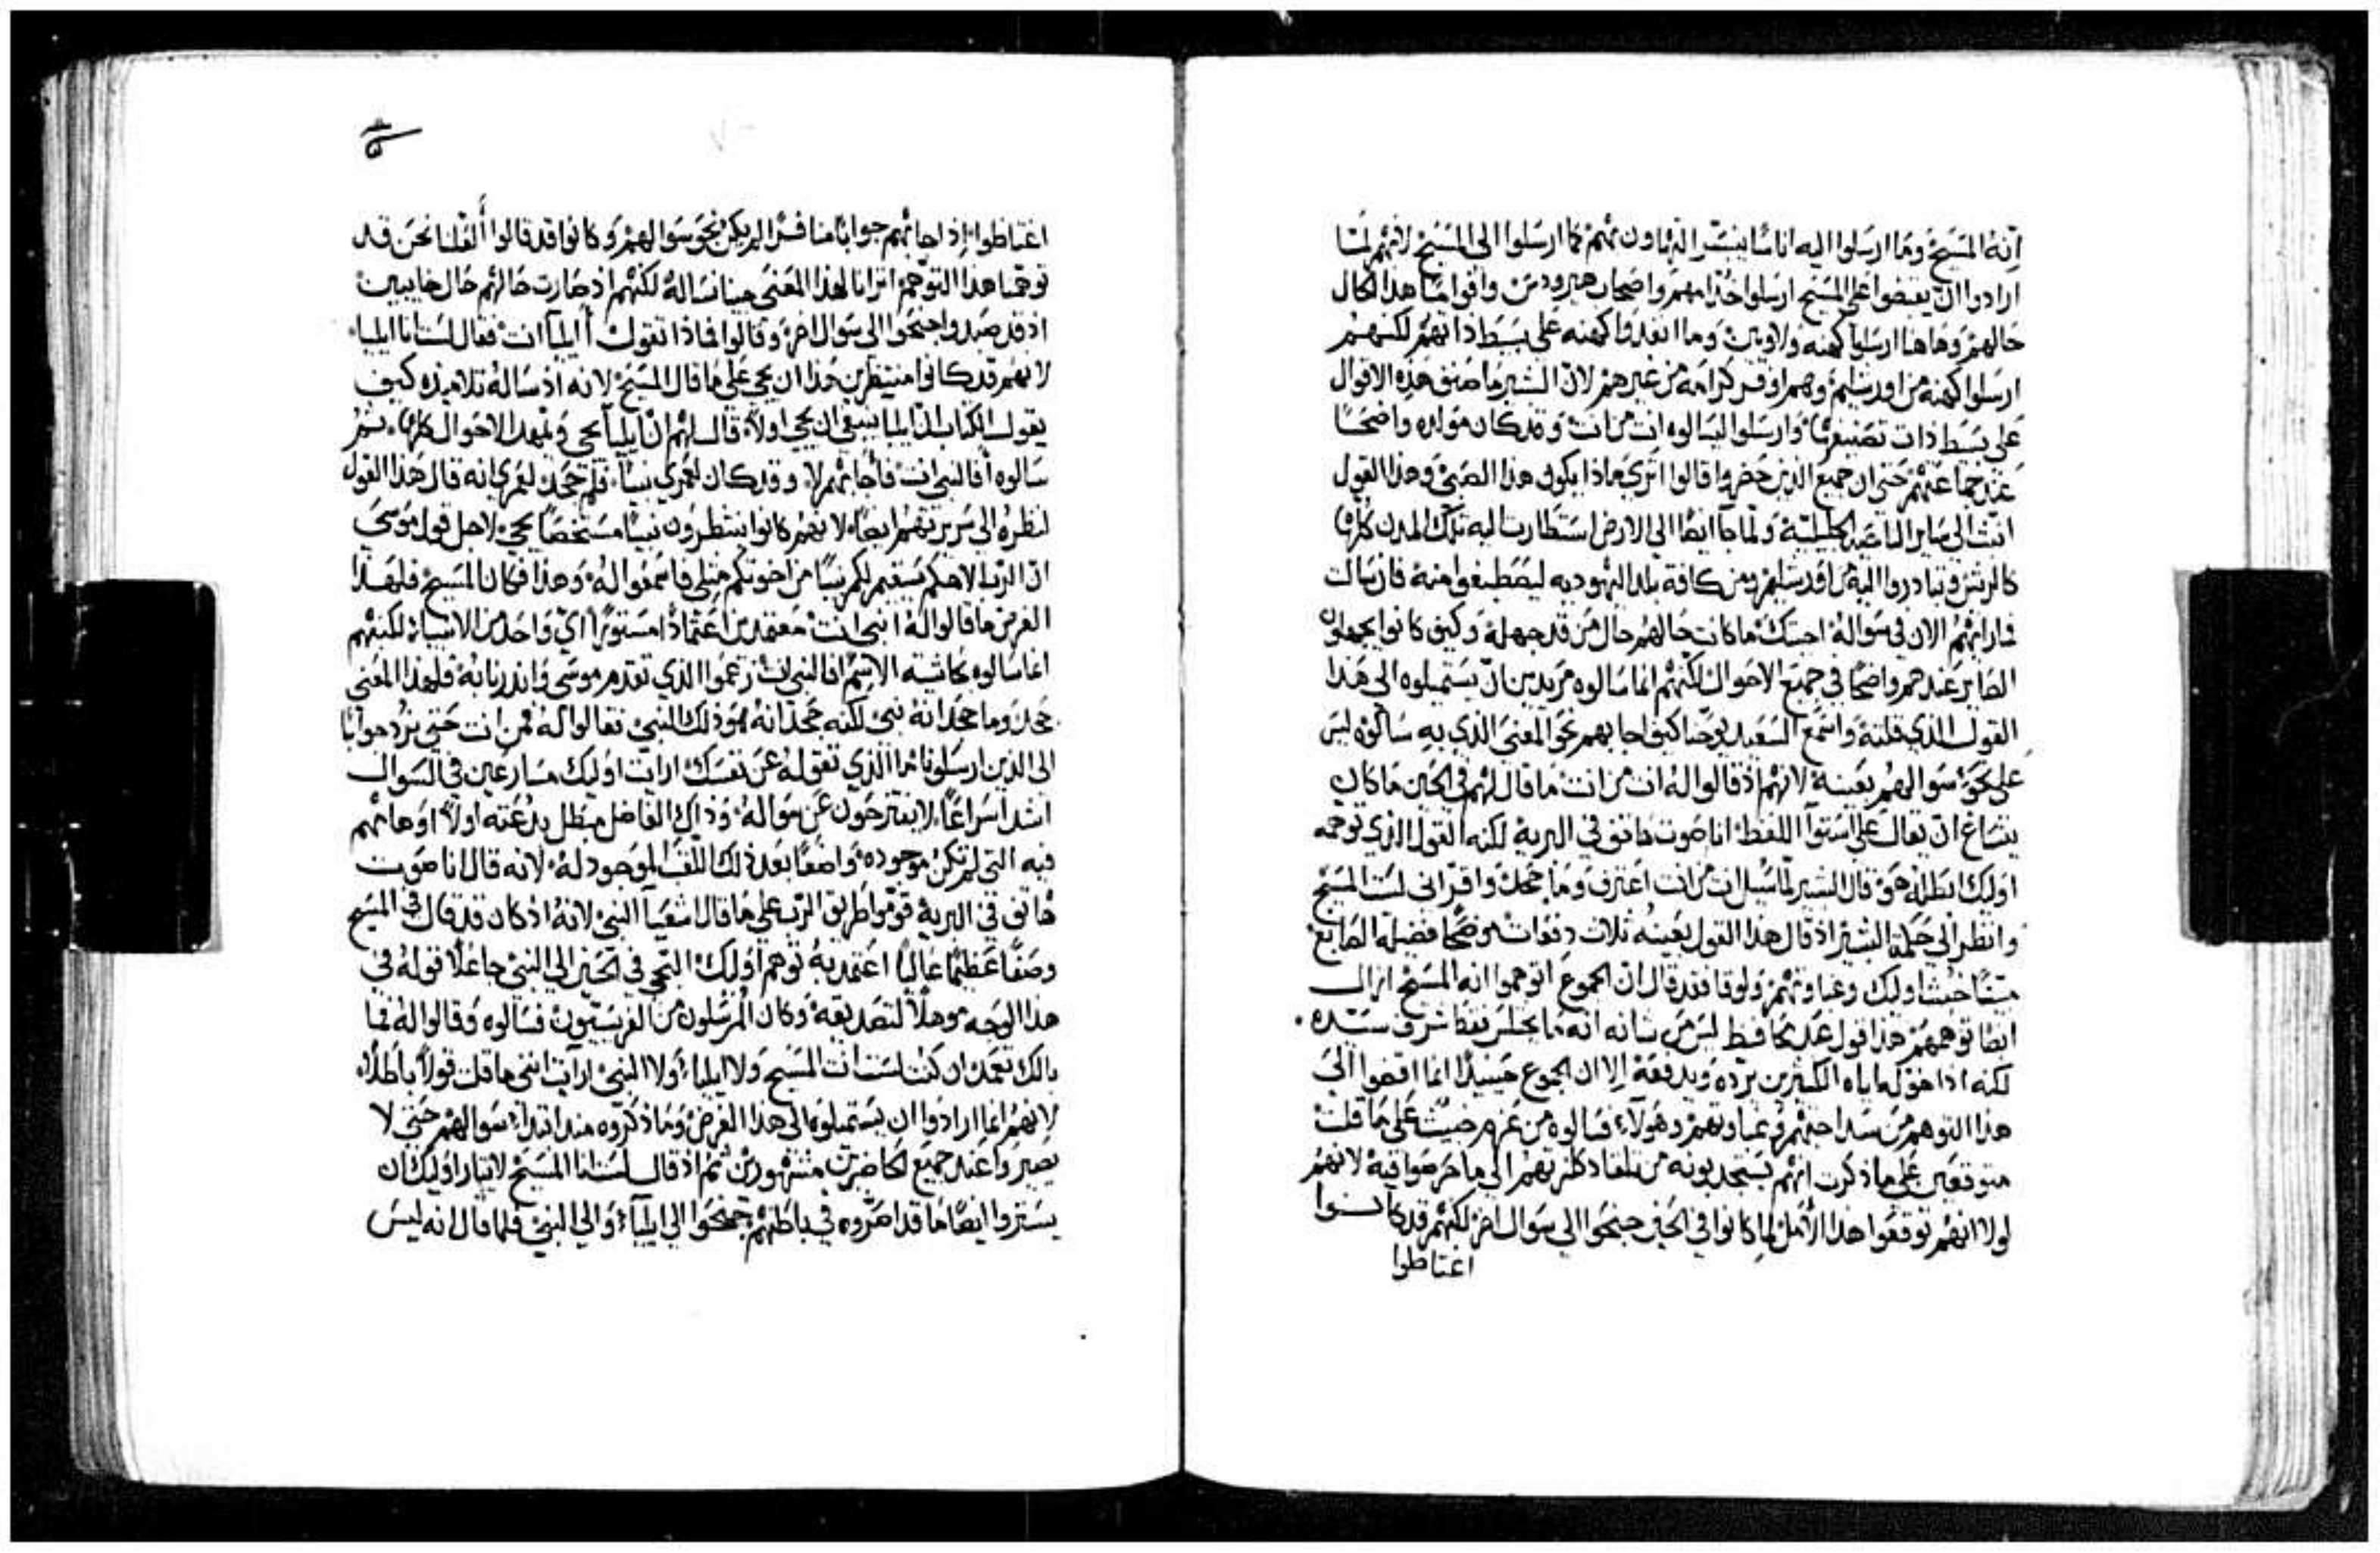 انه المسيح وما ارسلوا اليه اناسا يتيسر التهاون بهم كما ارسلوا الى المسيح لانهم لما
ارادوا ان يقبضوا على المسيح ارسلوا خدامهم واصحاب هيرودس واقواما هذا الحال
حالهم وهاهنا ارسلوا كهنه ولاويين وما انفدوا كهنه على بسط ذاتهم لكنهم
ارسلوا كهنه من اورشليم وهم اوفر كرامه من غيرهم لان البشير ما صنف هذه الاقوال
على بسط ذات تصنيفها وارسلوا ليسالوه انت من انت وقد كان مولده واضحا
عند جماعتهم حتى ان جميع الذين حضروا قالوا اترى ماذا يكون هذا الصبي وهذا القول
انبث الى ساير الناحيه الجليليه ولما جا ايضا الى الاردن استطارت اليه تلك المدن كلها
كالريش وتبادروا اليه من اورشليم ومن كافة بلد اليهوديه ليصطبغوا منه فان سالت
فما رايهم الان في سواله اجبتك ما كانت حالهم حال من قد جهله وكيف كانوا يجهلون
الصاير عندهم واضحا في جميع الاحوال لكنهم انما سالوه مريدين ان يستميلوه الى هذا
القول الذي قلته واسمع السعيد يوحنا كيف اجابهم نحو المعنى الذي به سالوه ليس
على نحو سوالهم بعينه لانهم اذ قالوا له انت من انت ما قال لهم في الحين ما كان
ينساغ ان يقال على استوا اللفظ انا صوت هاتف في البرية لكنه القول الذي توهمه
اوليك ابطله هو قال البشير لما سيل انت من انت اعترف وما جحد واقر اني لست المسيح
وانظر الى حكمة البشير اذ قال هذا القول بعينه ثلاث دفعات موضحا فضيلة الصابغ
مبينا خبث اوليك وغباوتهم ولوقا فقد قال ان الجموع توهموا انه المسيح ازال
ايضا توهمهم هذا قول عبد محافظ ليس من شانه انه ما يختلس فقط شرف سيده
لكنه اذا خوله اياه الكثيرين يرده ويدفعه الا ان الجموع حينيذ انما افضوا الى
هذا التوهم من سداجتهم وغباوتهم وهولاء فسالوه من عزم خبيث على ما قلت
متوقعين على ما ذكرت انهم يستجدبونه من تلقا دكرتهم الى ما حرصوا فيه لانهم
لولا انهم توقعوا هذا الامل لما كانوا في الحين جنحوا الى سوال اخر لكنهم قد كانوا
اغتاظوا
اغتاظوا اذ اجابهم جوابا منافرا لم يكن نحو سوالهم وكانوا قد قالوا ألعلنا نحن قد
توهمنا هذا التوهم اترانا لهذا المعنى جينا نساله لكنهم اذ صارت حالهم حال خايبين
اذ قد صيدوا جنحوا الى سوال اخر وقالوا فماذا تقول أايليا انت فقال لست انا ايلياء
لانهم قد كانوا منتظرين هذا ان يجي على ما قال المسيح لانه اذ ساله تلاميذه كيف
يقول الكتاب ان ايليا ينبغي ان يجي اولا قال لهم ان ايليا يجي ويمهد الاحوال كلها ثم
سالوه أفالنبي انت فأجابهم لا وقد كان لعمري نبيا فلم جحد لعمري انه قال هذا القول
لنظره الى سريرتهم ايضا لانهم كانوا ينتظرون نبيا مستخصا يجي لاجل قول موسى
ان الرب الاهكم سيقيم لكم نبيا من اخوتكم مثلي فاسمعوا له وهذا فكان المسيح فلهذا
الغرض ما قالوا له انبي انت معتقدين اعتمادا مستورا اي واحد من الانبياء لكنهم
انما سالوه بحاشية الاسم افالنبي انت زعموا الذي تقدم موسى واندرنا به فلهذا المعنى
جحد وما جحد انه نبي لكنه جحد انه هو ذلك النبي فقالوا له فمن انت حتى نرد جوابا
الى الذين ارسلونا ما الذي تقوله عن نفسك ارايت اوليك مسارعين في السوال
اشد اسراعا لا يفترحون عن سواله وذاك الفاضل مبطل بدعته اولا اوهامهم
فيه التي لم تكن موجوده واضعا بعد ذلك اللقب الموجود له لانه قال انا صوت
هاتف في البرية قوموا طريق الرب على ما قال اشعيآ النبي لانه اذ كان قد قال في المسيح
وصفا عظيما عاليا اعتمد به توهم اوليك التجي في الحين الى النبي جاعلا قوله في
هذا الوجه موهلا لتصديقه وكان المرسلون من الفريسيون فسالوه وقالوا له فما
بالك تعمد ان كنت لست انت المسيح ولا ايليا ولا النبي ارايت انني ما قلت قولا باطلا
لانهم انما ارادوا ان يستميلوه الى هذا الغرض وما ذكروه منذ ابتداء سوالهم حتى لا
يصيروا عند جميع الحاضرين مشهورين ثم اذ قال لست انا المسيح لاتبار اوليك ان
يستروا ايضا ما قد اضروه في باطنهم جمحوا الى ايلياء والى النبي فلما قال انه ليس